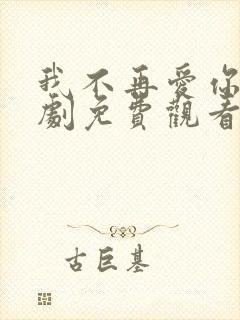 我不再愛你
劇免費觀看
古巨基